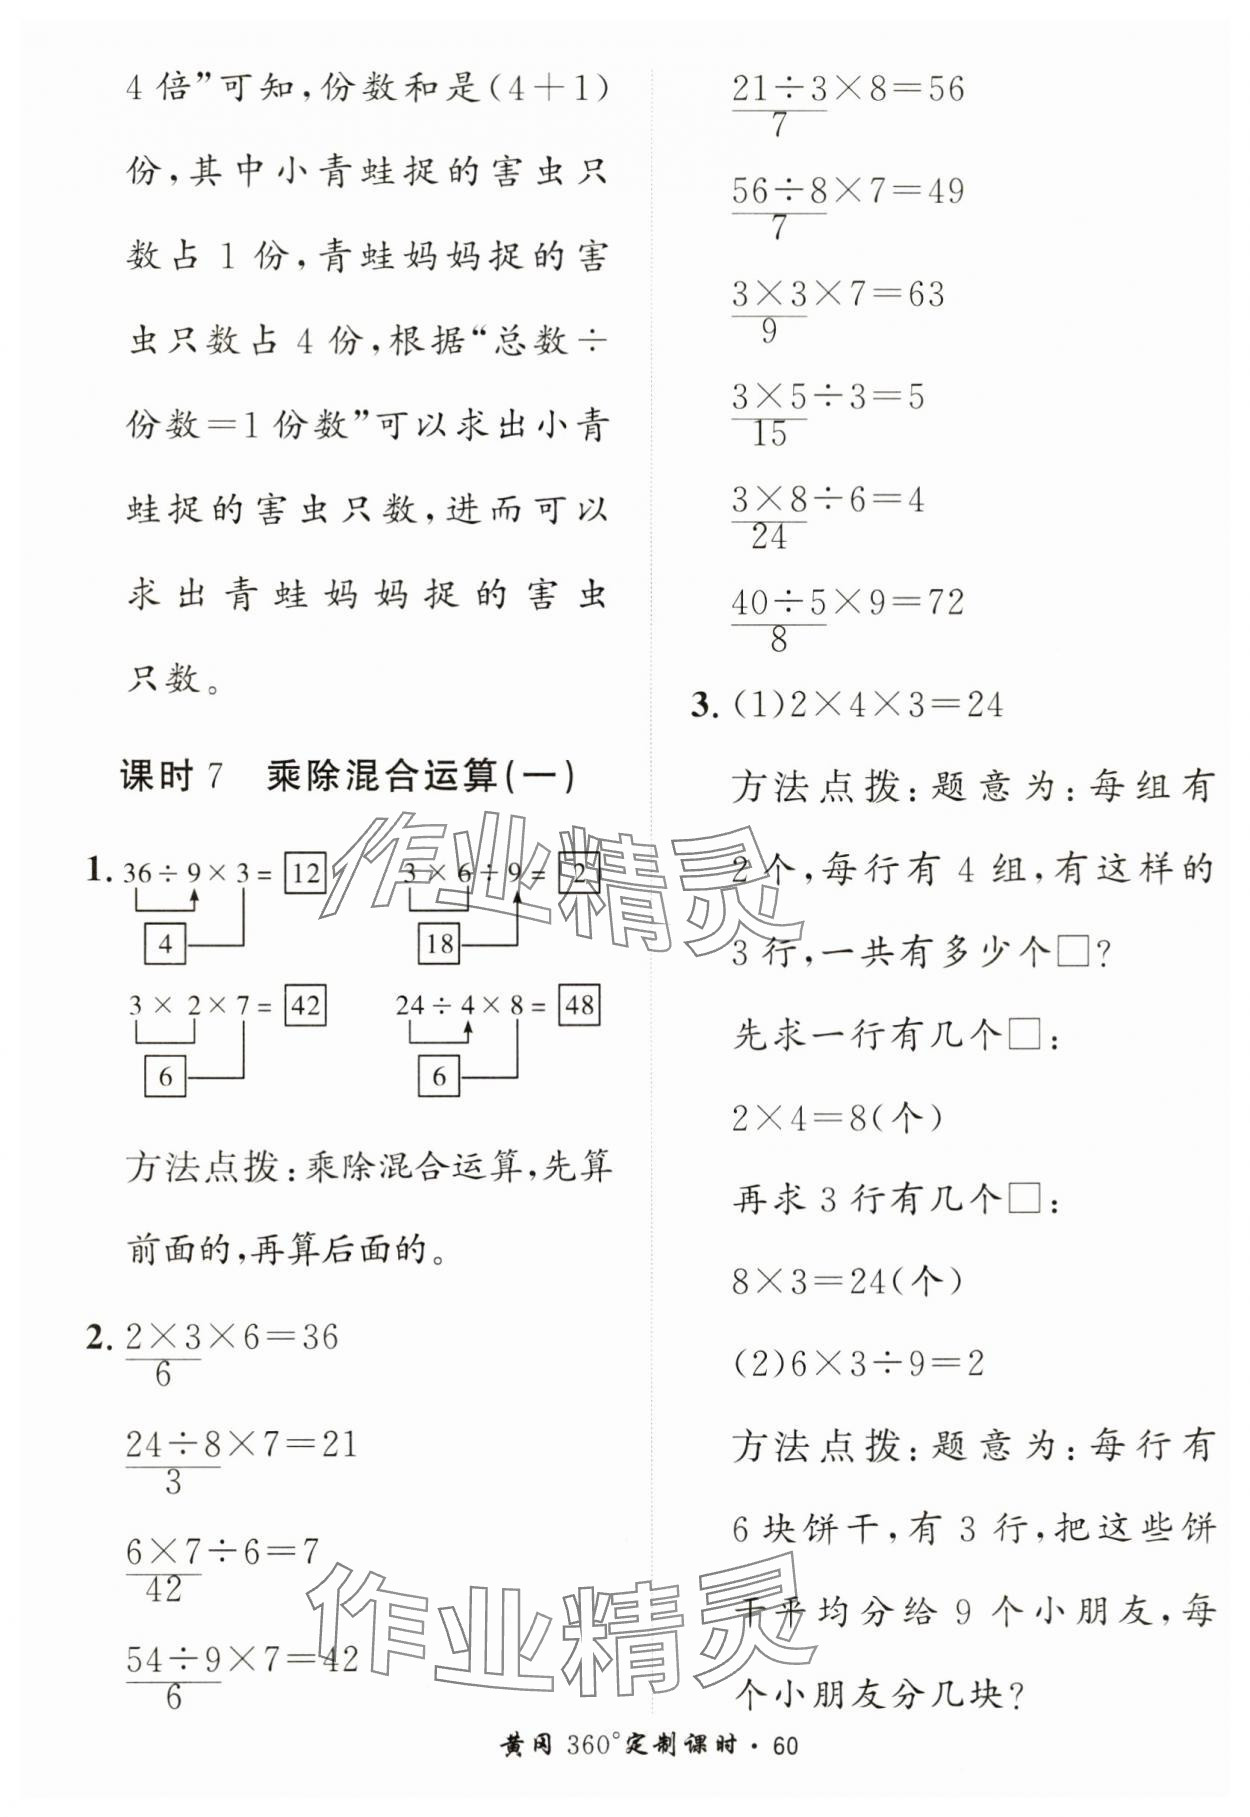 4倍”可知,份数和是(4+1)
份,其中小青蛙捉的害虫只
数占1份,青蛙妈妈捉的害
虫只数占4份,根据“总数÷
份数=1份数”可以求出小青
蛙捉的害虫只数,进而可以
求出青蛙妈妈捉的害虫
只数。
课时7 乘除混合运算(一)
1. 36÷9×3=12 3×6÷9=2
4 18
3×2×7=42 24÷4×8=48
6 6
方法点拨:乘除混合运算,先算
前面的,再算后面的。
2. 2×3×6=36
6
24÷8×7=21
3
6×7÷6=7
42
54÷9×7=42
6
21÷3×8=56
7
56÷8×7=49
7
3×3×7=63
9
3×5÷3=5
15
3×8÷6=4
24
40÷5×9=72
8
3. (1)2×4×3=24
方法点拨:题意为:每组有
2个,每行有4组,有这样的
3行,一共有多少个□?
先求一行有几个□:
2×4=8(个)
再求3行有几个□:
8×3=24(个)
(2)6×3÷9=2
方法点拨:题意为:每行有
6块饼干,有3行,把这些饼
干平均分给9个小朋友,每
个小朋友分几块?
黄冈360°定制课时·60
作业精灵
作业精灵